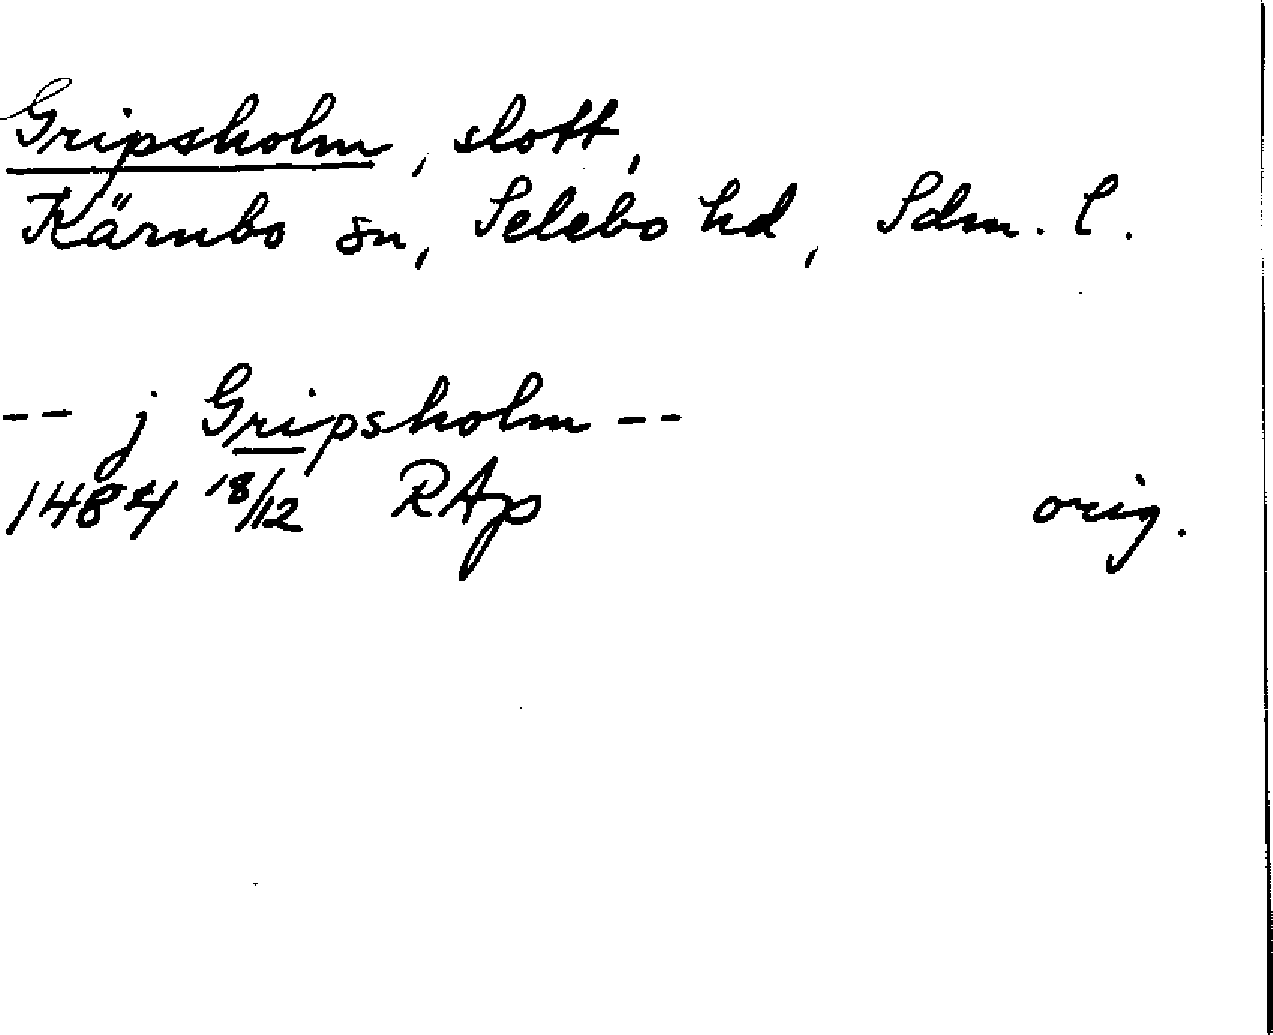 Gripsholm, slott,
Kärnbo sn, Selebo hd, Sdm. l.
-- j Gripsholm --
1484 18/12 RAp orig.